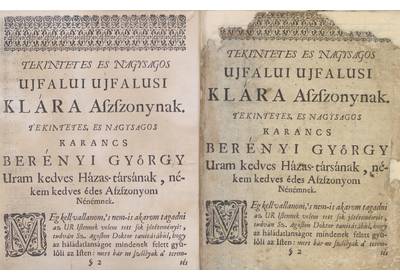 TEKINTETES ES NAGYSAGOS
UJFALUI UJFALUSI
KLÁRA Aſzſzonynak.
TEKINTETES, ES NAGYSAGOS
KARANCS
BERÉNYI GYÖRGY
Uram kedves Házas-társának, né-
kem kedves édes Aſzſzonyom
Nénémnek.
MEg kell vallanom, 's nem-is akarom tagadni
az UR Iſtennek velem tett ſok jótéteményit;
tudván Sz. Agoſton Doktor tanitáſából, hogy
az háládatlanságot mindenek felett gyü-
löli az Iſten: mert bár ne ſzóllyak á' terem-
§ 2
tés
TEKINTETES ES NAGYSAGOS
UJFALUI UJFALUSI
KLÁRA Aſzſzonynak.
TEKINTETES, ES NAGYSAGOS
KARANCS
BERÉNYI GYÖRGY
Uram kedves Házas-társának, né-
kem kedves édes Aſzſzonyom
Nénémnek.
MEg kell vallanom, 's nem-is akarom tagadni
az UR Iſtennek velem tett ſok jótéteményit;
tudván Sz. Agoſton Doktor tanitáſából, hogy
az háládatlanságot mindenek felett gyü-
löli az Iſten: mert bár ne ſzóllyak á' terem-
§ 2
tés